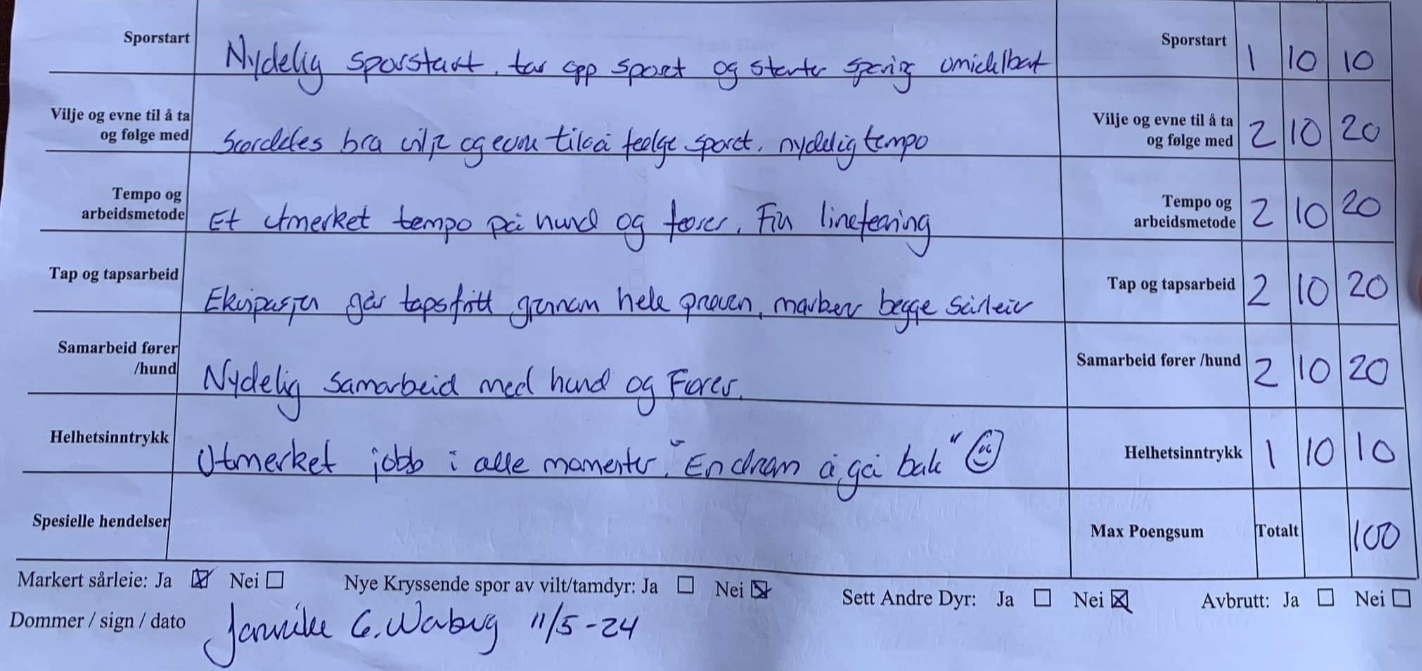 Sporstart Nydelig sporstart. tar opp sporet og starter sporing omidelbart Sporstart 1 10 10
Vilje og evne til å ta
og følge med
bra vilje og evne til å følge sporet. nydelig tempo
Vilje og evne til å ta
og følge med
2 10 20
Tempo og
arbeidsmetode
Et utmerket tempo på hund og fører. Fin lineføring
Tempo og
arbeidsmetode
2 10 20
Tap og tapsarbeid Ekvipasjen går tapsfritt gjennom hele prøven, markerer begge sårleier Tap og tapsarbeid 2 10 20
Samarbeid fører
/hund
Nydelig samarbeid med hund og Fører.
Samarbeid fører /hund 2 10 20
Helhetsinntrykk Utmerket jobb i alle momenter. "En drøm å gå bak" Helhetsinntrykk 1 10 10
Spesielle hendelser Max Poengsum Totalt 100
Markert sårleie: Ja ☒ Nei ☐ Nye Kryssende spor av vilt/tamdyr: Ja ☐ Nei ☒ Sett Andre Dyr: Ja ☐ Nei ☒ Avbrutt: Ja ☐ Nei ☐
Dommer / sign / dato 11/5-24